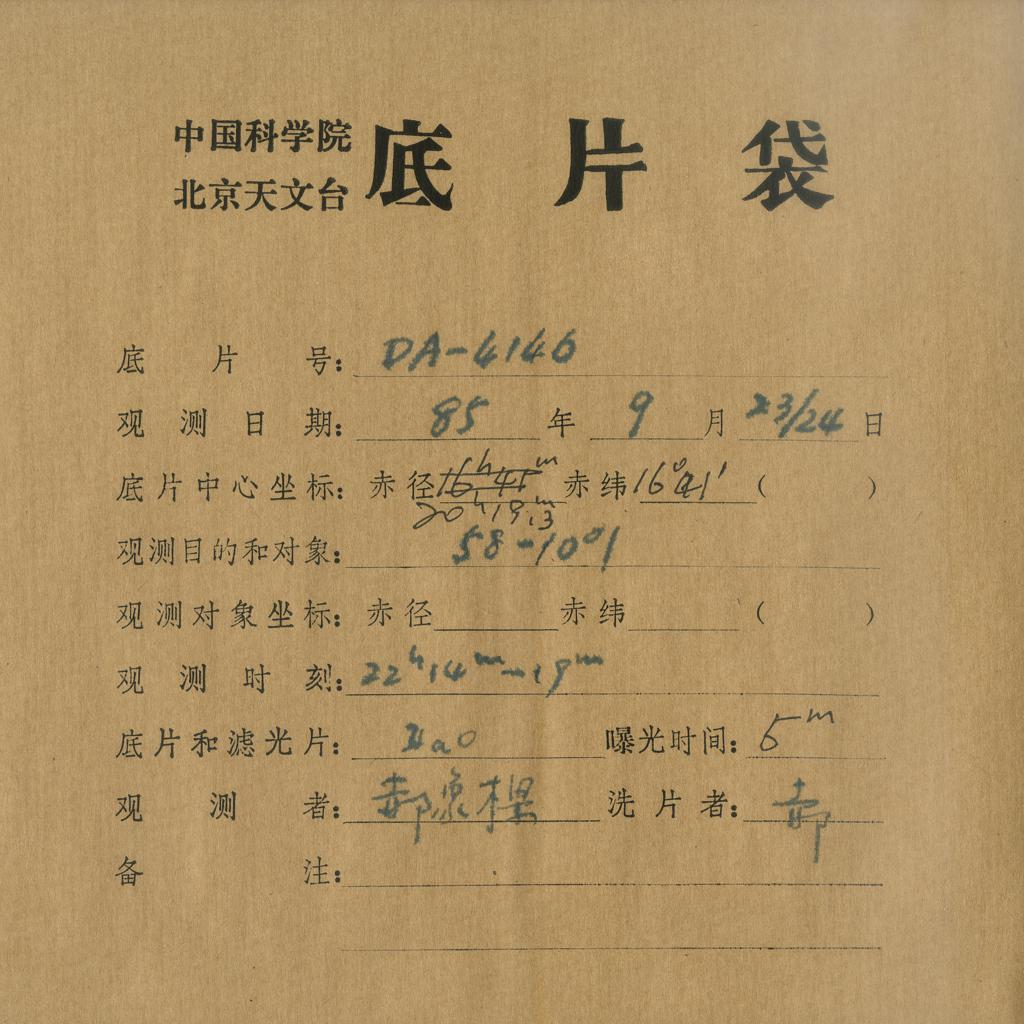 中国科学院
北京天文台
底片袋
底片号: DA-4146
观测日期: 85年9月23/24日
底片中心坐标: 赤径16ʰ41ᵐ 赤纬16°41′( )
20ʰ19ᵐ.3
观测目的和对象: 58-10°1
观测对象坐标: 赤径 赤纬 ( )
观测时刻: 22ʰ14ᵐ-19ᵐ
底片和滤光片: IIaO 曝光时间: 5ᵐ
观测者: 郝 洗片者: 郝
备注: